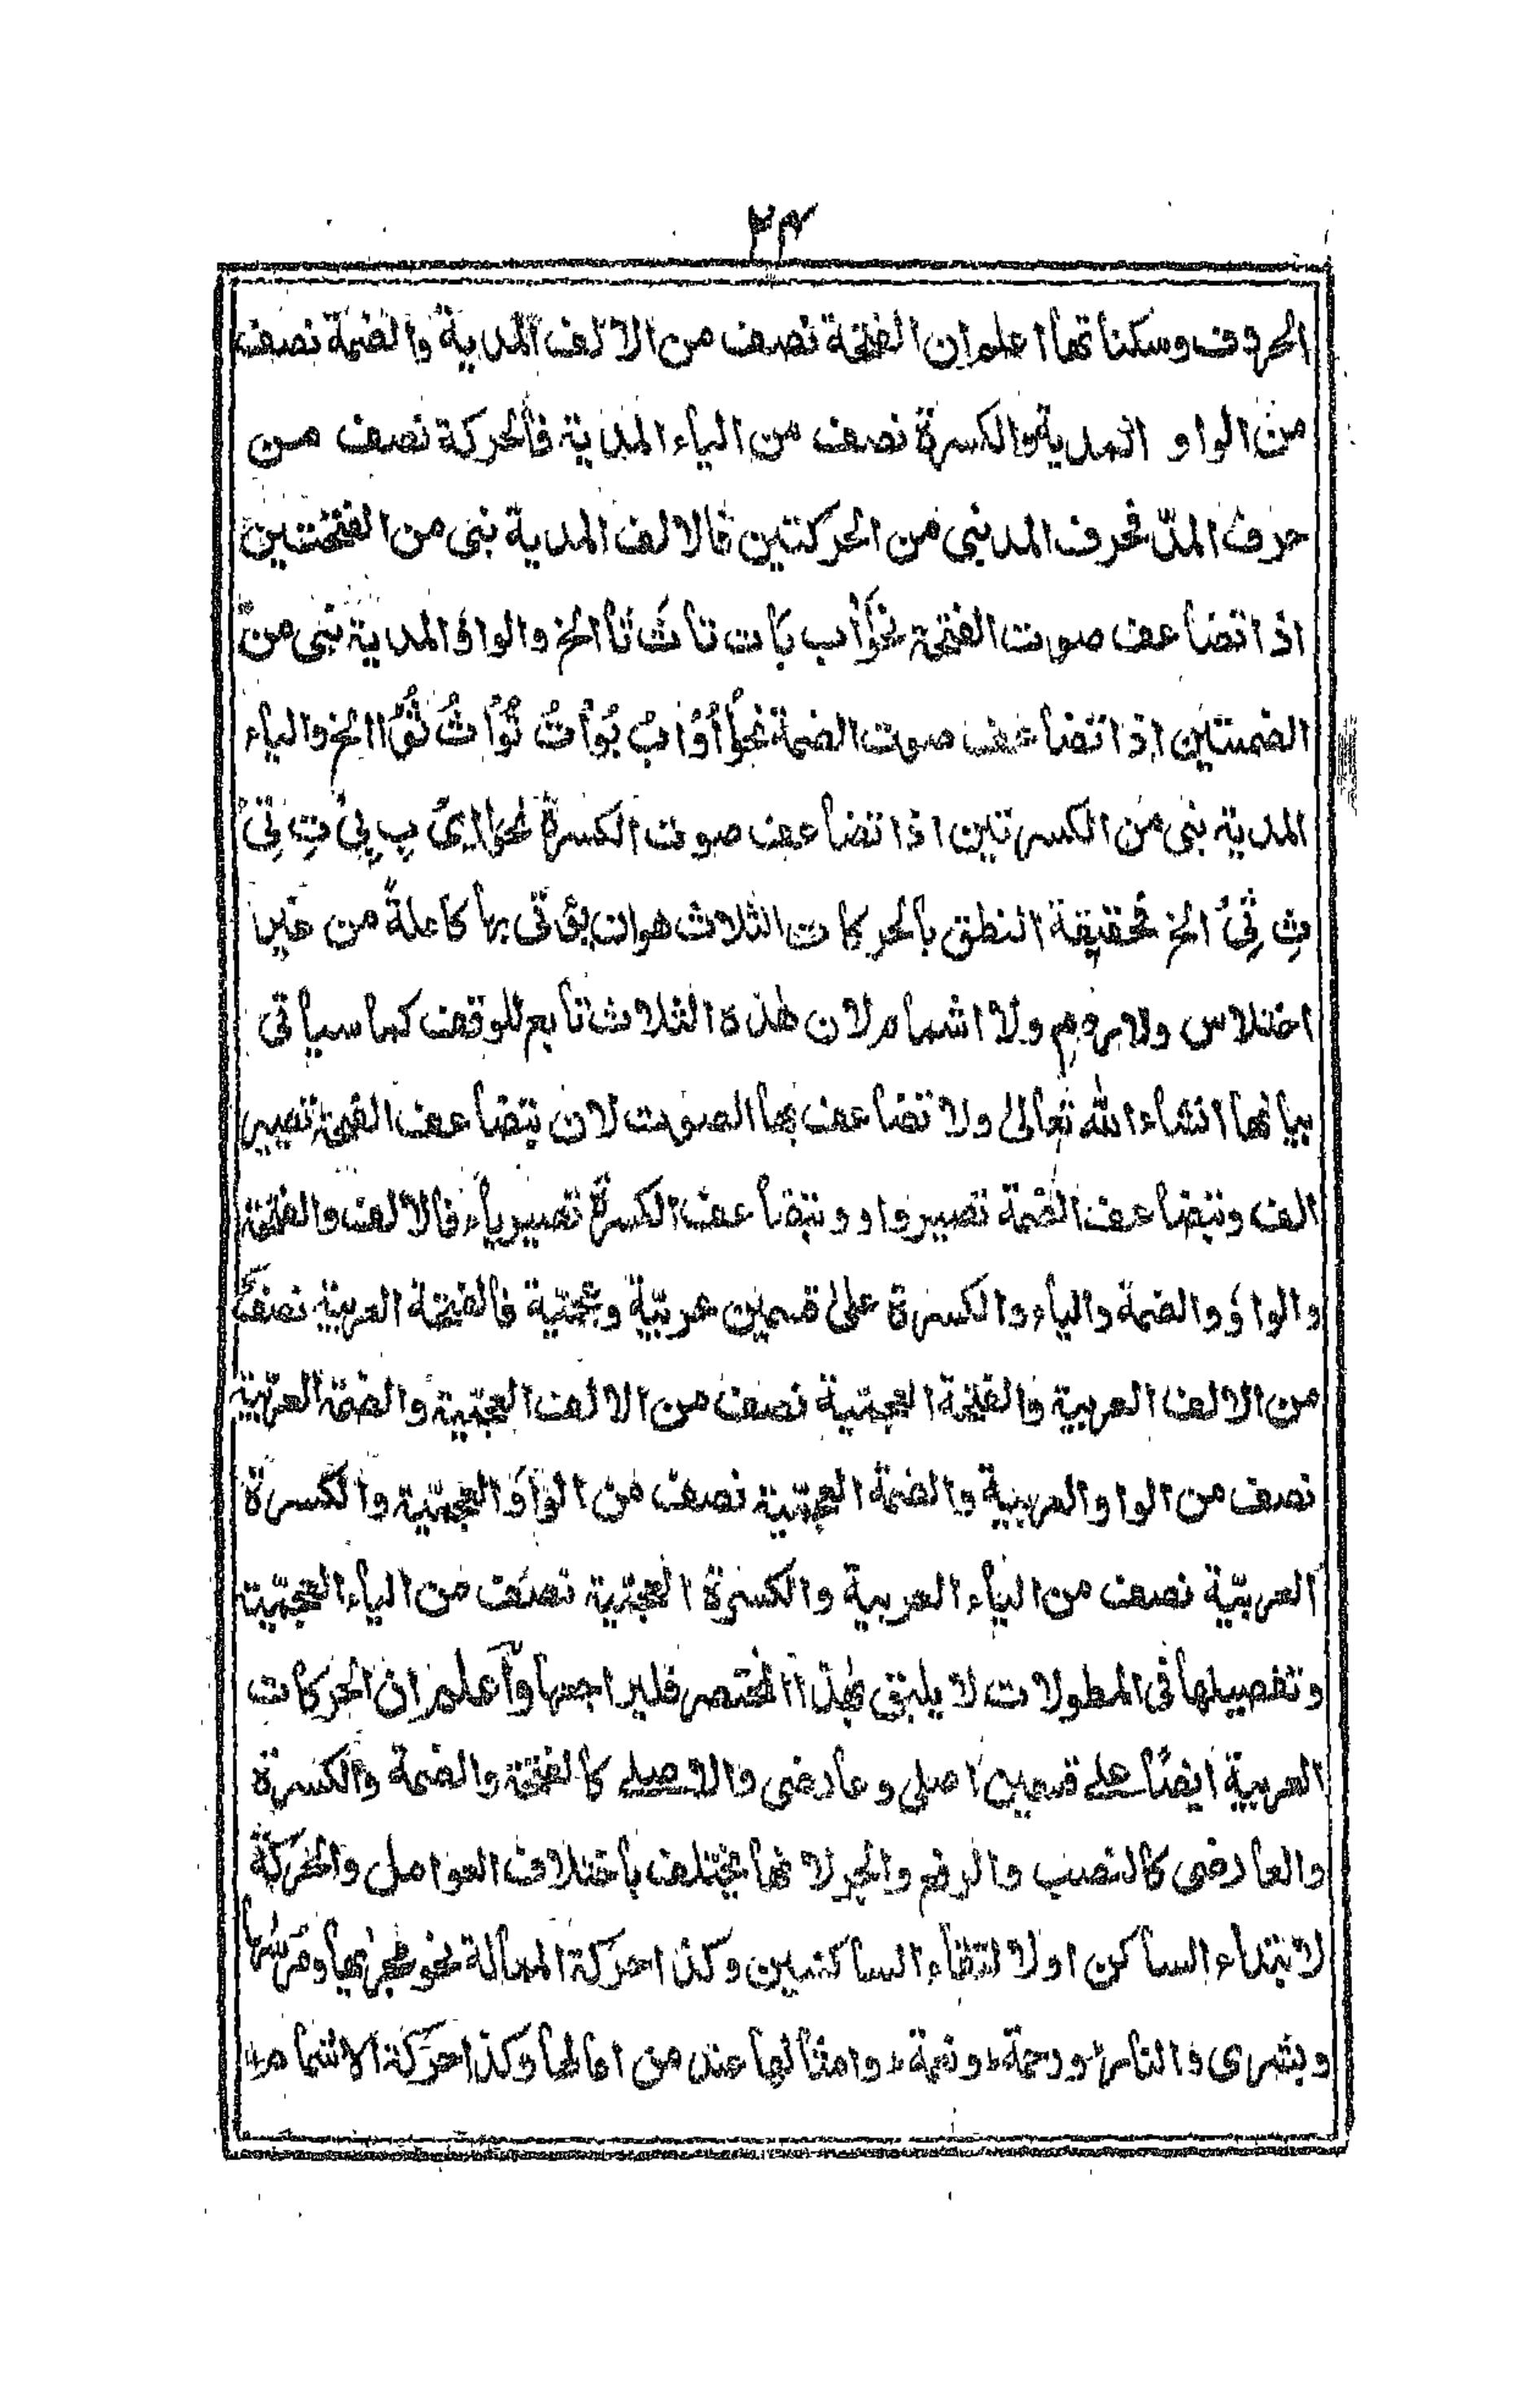 ٢٣
الحروف وسكناتها اعلم ان الفتحة نصف من الالف المدية والضمة نصف
من الواو المدية والكسرة نصف من الياء المدية فالحركة نصف من
حرف المدّ فحرف المد بنى من الحركتين فالالف المدية بنى من الفتحتين
اذا تضاعف صوت الفتحة نحو أاب بات تاث ثا الخ والواو المدية بنى من
الضمتين اذا تضاعف صوت الضمة نحو أُوْابُ بُوْاتُ تُوْاثُ ثُوْا الخ والياء
المدية بنى من الكسرتين اذا تضاعف صوت الكسرة نحو اِىْ بِ بِىْ تِ تِىْ
ثِ ثِىْ الخ فحقيقة النطق بالحركات الثلاث هوان يؤتى بها كاملةً من غير
اختلاس ولا روم ولا اشمام لان هذه الثلاث تابع للوقف كما سياتى
بيانها انشاء الله تعالىٰ ولا تضاعف بها الصوت لان بتضاعف الفتحة تصير
الف وبتضاعف الضمة تصير واو وبتضاعف الكسرة تصير ياء فالالف والفتحة
والواؤ والضمة والياء والكسرة علىٰ قسمين عربيّة وعجميّة فالفتحة العربية نصف
من الالف العربية والفتحة العجميّة نصف من الالف العجميّة والضمة العربيّة
نصف من الواو العربية والضمة العجميّة نصف من الواو العجميّة والكسرة
العربيّة نصف من الياء العربية والكسرة العجميّة نصف من الياء العجميّة
وتفصيلها فى المطولات لا يليق بهٰذا المختصر فليراجعها وأعلم ان الحركات
العربية ايضًا علے قسمين اصلى وعارضى والاصلے كالفتحة والضمة والكسرة
والعارضى كالنصب والرفع والجر لانها يختلف باختلاف العوامل والحركة
لابتداء الساكن اولالتقاء الساكنين وكذا حركة الممالة نحو مجرٰىها ومرسٰىها
وبشرى والنار ورحمة ونعمة وامثالها عند من امالها وكذا حركة الاشمام